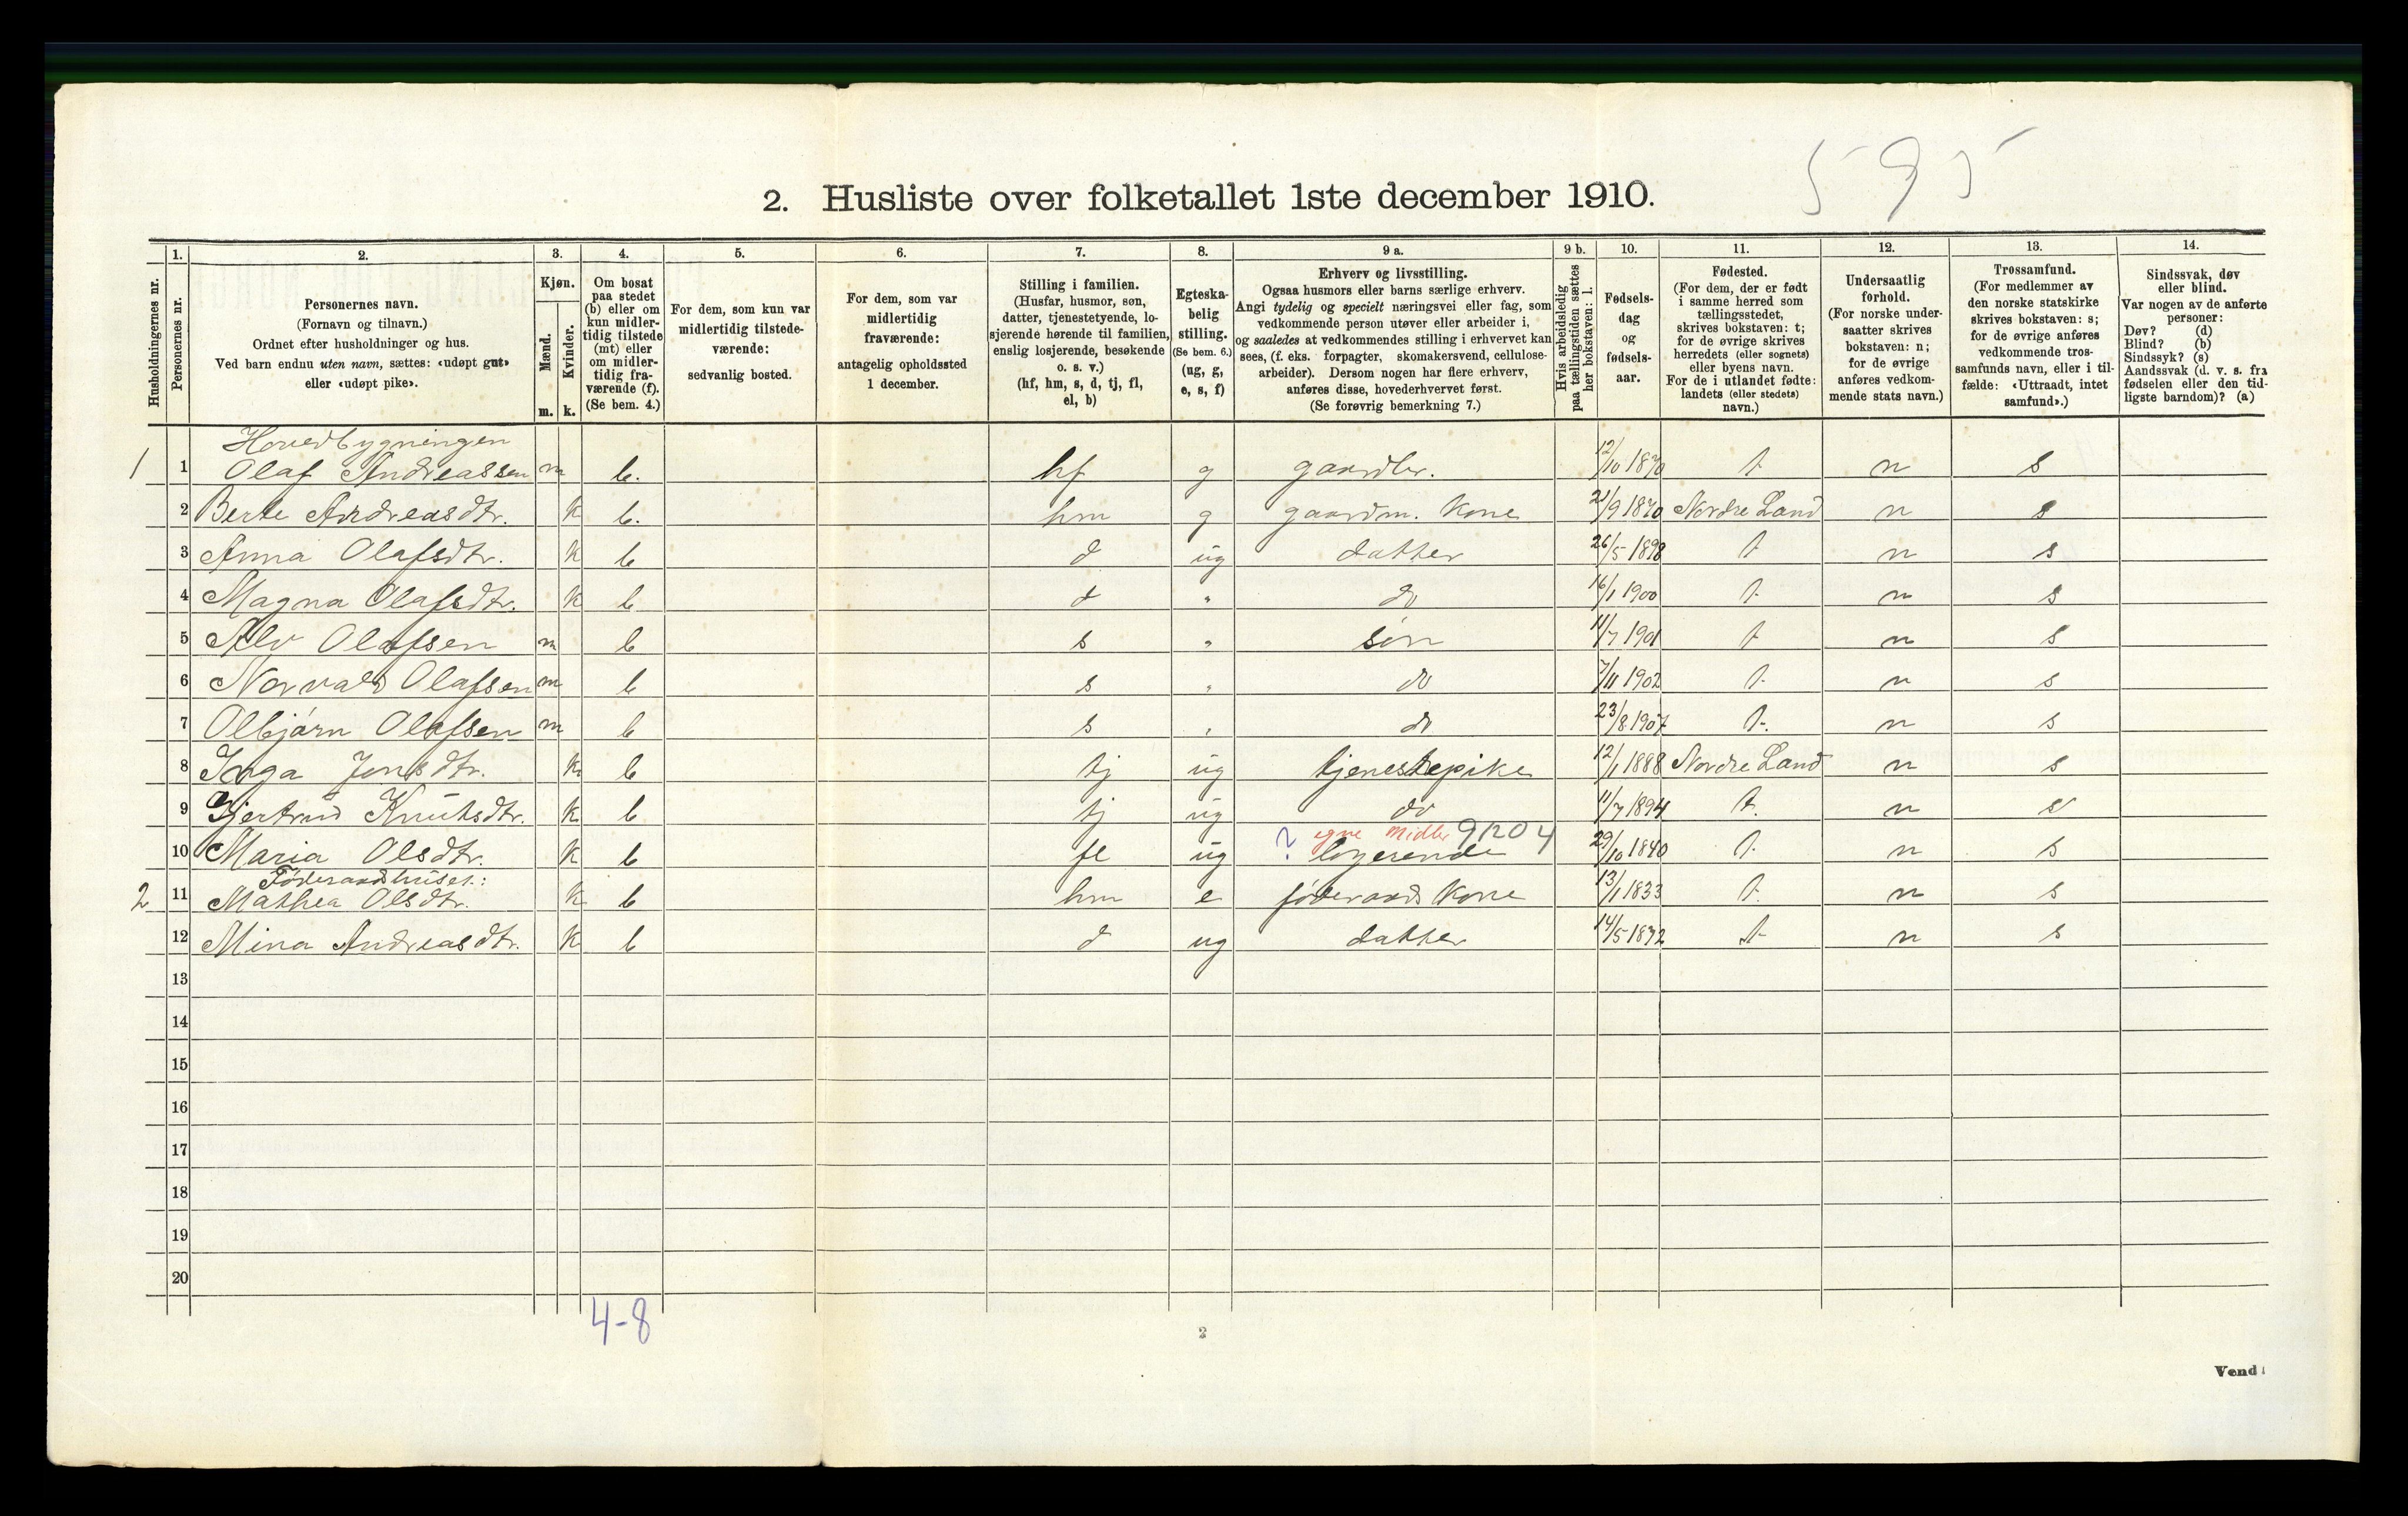 595
2. Husliste over folketallet 1ste december 1910.
Husholdningernes nr.
1.
Personernes nr.
2.
Personernes navn.
(Fornavn og tilnavn.)
Ordnet efter husholdninger og hus.
Ved barn endnu uten navn, sættes: «udøpt gut»
eller «udøpt pike».
3.
Kjøn.
Mænd.
Kvinder.
m. k.
4.
Om bosat
paa stedet
(b) eller om
kun midler-
tidig tilstede
(mt) eller
om midler-
tidig fra-
værende (f).
(Se bem. 4.)
5.
For dem, som kun var
midlertidig tilstede-
værende:
sedvanlig bosted.
6.
For dem, som var
midlertidig
fraværende:
antagelig opholdssted
1 december.
7.
Stilling i familien.
(Husfar, husmor, søn,
datter, tjenestetyende, lo-
sjerende hørende til familien,
enslig losjerende, besøkende
o. s. v.)
(hf, hm, s, d, tj, fl,
el, b)
8.
Egteska-
belig
stilling.
(Se bem. 6.)
(ug, g,
e, s, f)
9 a.
Erhverv og livsstilling.
Ogsaa husmors eller barns særlige erhverv.
Angi tydelig og specielt næringsvei eller fag, som
vedkommende person utøver eller arbeider i,
og saaledes at vedkommendes stilling i erhvervet kan
sees, (f. eks. forpagter, skomakersvend, cellulose-
arbeider). Dersom nogen har flere erhverv,
anføres disse, hovederhvervet først.
(Se forøvrig bemerkning 7.)
9 b.
Hvis arbeidsledig
paa tællingstiden sættes
her bokstaven: l.
10.
Fødsels-
dag
og
fødsels-
aar.
11.
Fødested.
(For dem, der er født
i samme herred som
tællingsstedet,
skrives bokstaven: t;
for de øvrige skrives
herredets (eller sognets)
eller byens navn.
For de i utlandet fødte:
landets (eller stedets)
navn.)
12.
Undersaatlig
forhold.
(For norske under-
saatter skrives
bokstaven: n;
for de øvrige
anføres vedkom-
mende stats navn.)
13.
Trossamfund.
(For medlemmer av
den norske statskirke
skrives bokstaven: s;
for de øvrige anføres
vedkommende tros-
samfunds navn, eller i til-
fælde: «Uttraadt, intet
samfund».)
14.
Sindssvak, døv
eller blind.
Var nogen av de anførte
personer:
Døv? (d)
Blind? (b)
Sindssyk? (s)
Aandssvak (d. v. s. fra
fødselen eller den tid-
ligste barndom)? (a)
Hovedbygningen
1 1 Olaf Andreassen m b. hf g gaardbr. 12/10 1870 t n s
2 Berte Andreasdtr. k b. hm g gaardm. kone 21/9 1870 Nordre Land n s
3 Anna Olafsdtr. k b d ug datter 26/5 1898 t n s
4 Magna Olafsdtr. k b d " do 16/1 1900 t n s
5 Alv Olafsen m b s " søn 11/7 1901 t n s
6 Norvald Olafsen m b s " do 7/11 1902 t n s
7 Olbjørn Olafsen m b s " do 23/8 1907 t. n s
8 Inga Jonsdtr. k b tj ug tjenestepike 12/1 1888 Nordre Land n s
9 Gjertrud Knutsdtr. k b tj ug do 11/7 1894 t. n s
? egne midler 91204
10 Maria Olsdtr. k b fl ug losjerende 29/10 1840 t. n s
Føderaadshuset:
2 11 Mathea Olsdtr. k b hm e føderaads kone 13/1 1833 t. n s
12 Mina Andreasdtr. k b d ug datter 14/5 1872 t n s
13
14
15
16
17
18
19
20
4-8
2
Vend!